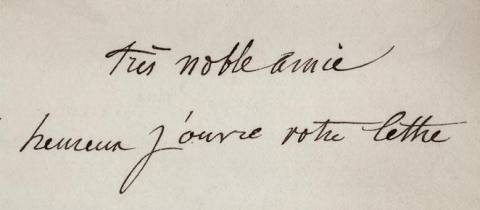 très noble amie
heureux j'ouvre votre lettre